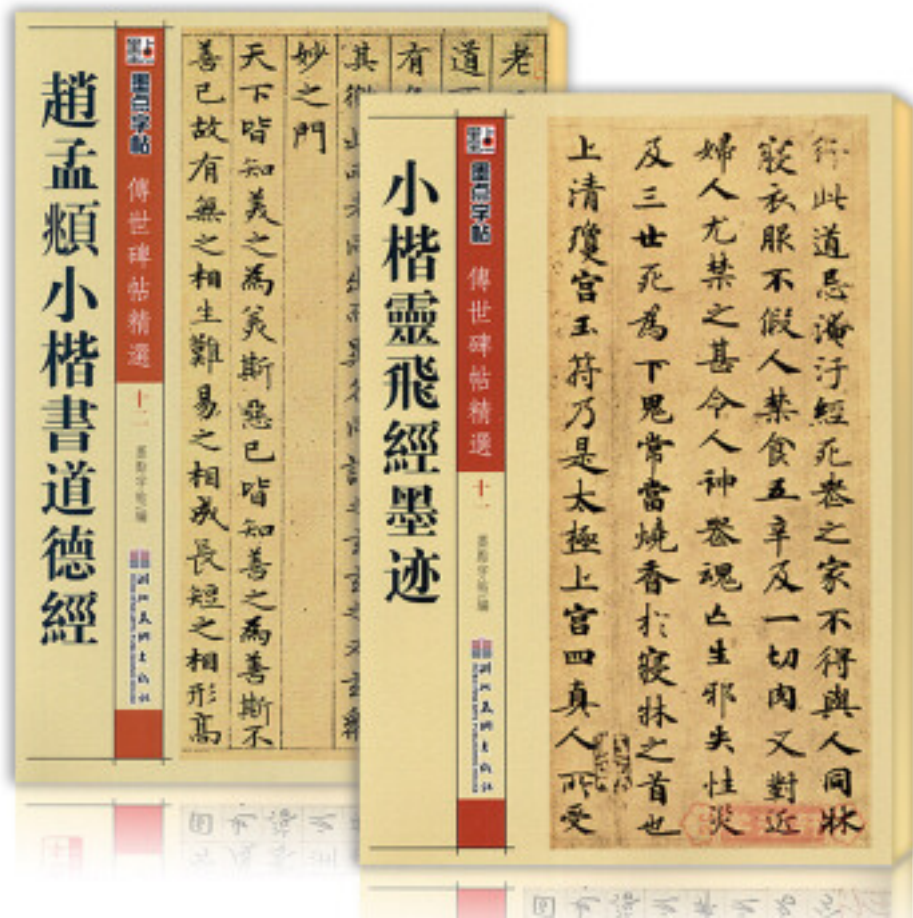 趙孟頫小楷書道德經
墨点字帖
傳世碑帖精選
十二
墨點字帖 編
湖北美術出版社
老
道
有
其徼此兩者同出而異名同謂之玄玄之又玄衆
妙之門
天下皆知美之為美斯惡已皆知善之為善斯不
善已故有無之相生難易之相成長短之相形高
小楷靈飛經墨迹
墨点字帖
傳世碑帖精選
十一
墨點字帖 編
湖北美術出版社
行此道忌淹汙經死喪之家不得與人同牀
寢衣服不假人禁食五辛及一切肉又對近
婦人尤禁之甚令人神喪魂亡生邪失性災
及三世死為下鬼常當燒香於寢牀之首也
上清瓊宮玉符乃是太極上宮四真人所受